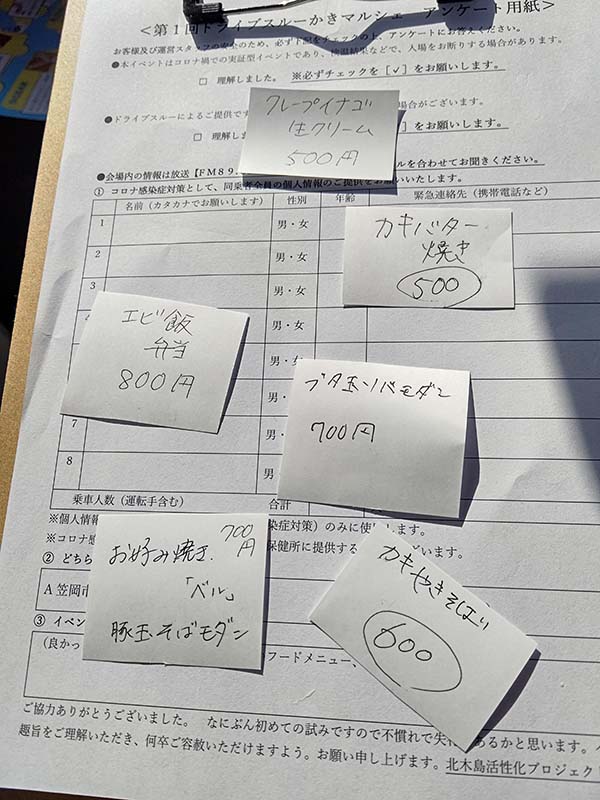 ＜第１回ドライブスルーかきマルシェ　アンケート用紙＞
お客様及び運営スタッフの安全のため、必ず下記をチェックの上、アンケートにお答えください。
●本イベントはコロナ禍での実証型イベントであり、検温結果などで、入場をお断りする場合があります。
□ 理解しました。 ※必ずチェックを［✓］をお願いします。
●ドライブスルーによるご提供です 場合がございます。
□ 理解しま ］をお願いします。
クレープイチゴ
生クリーム
500円
●会場内の情報は放送【FM８９. ルを合わせてお聞きください。
① コロナ感染症対策として、同乗者全員の個人情報のご提供をお願いいたします。
名前（カタカナでお願いします） 性別 年齢 緊急連絡先（携帯電話など）
1 男・女
2 男・女
3 男・女
男・女
男・女
男・
7 男・
8 男
カキバター
焼き
500
エビ飯
弁当
800円
ブタ玉ソバモダン
700円
乗車人数（運転手含む） 合計
※個人情報 染症対策）のみに使 します。
※コロナ感 保健所に提供する ございます。
② どちら
A 笠岡市
③ イベン
（良かっ フードメニュー、
700円
お好み焼き
「ベル」
豚玉そばモダン
カキやきそば
600
ご協力ありがとうございました。 なにぶん初めての試みですので不慣れで失 あるかと思います。
趣旨をご理解いただき、何卒ご容赦いただけますよう。お願い申し上げます。北木島活性化プロジェク